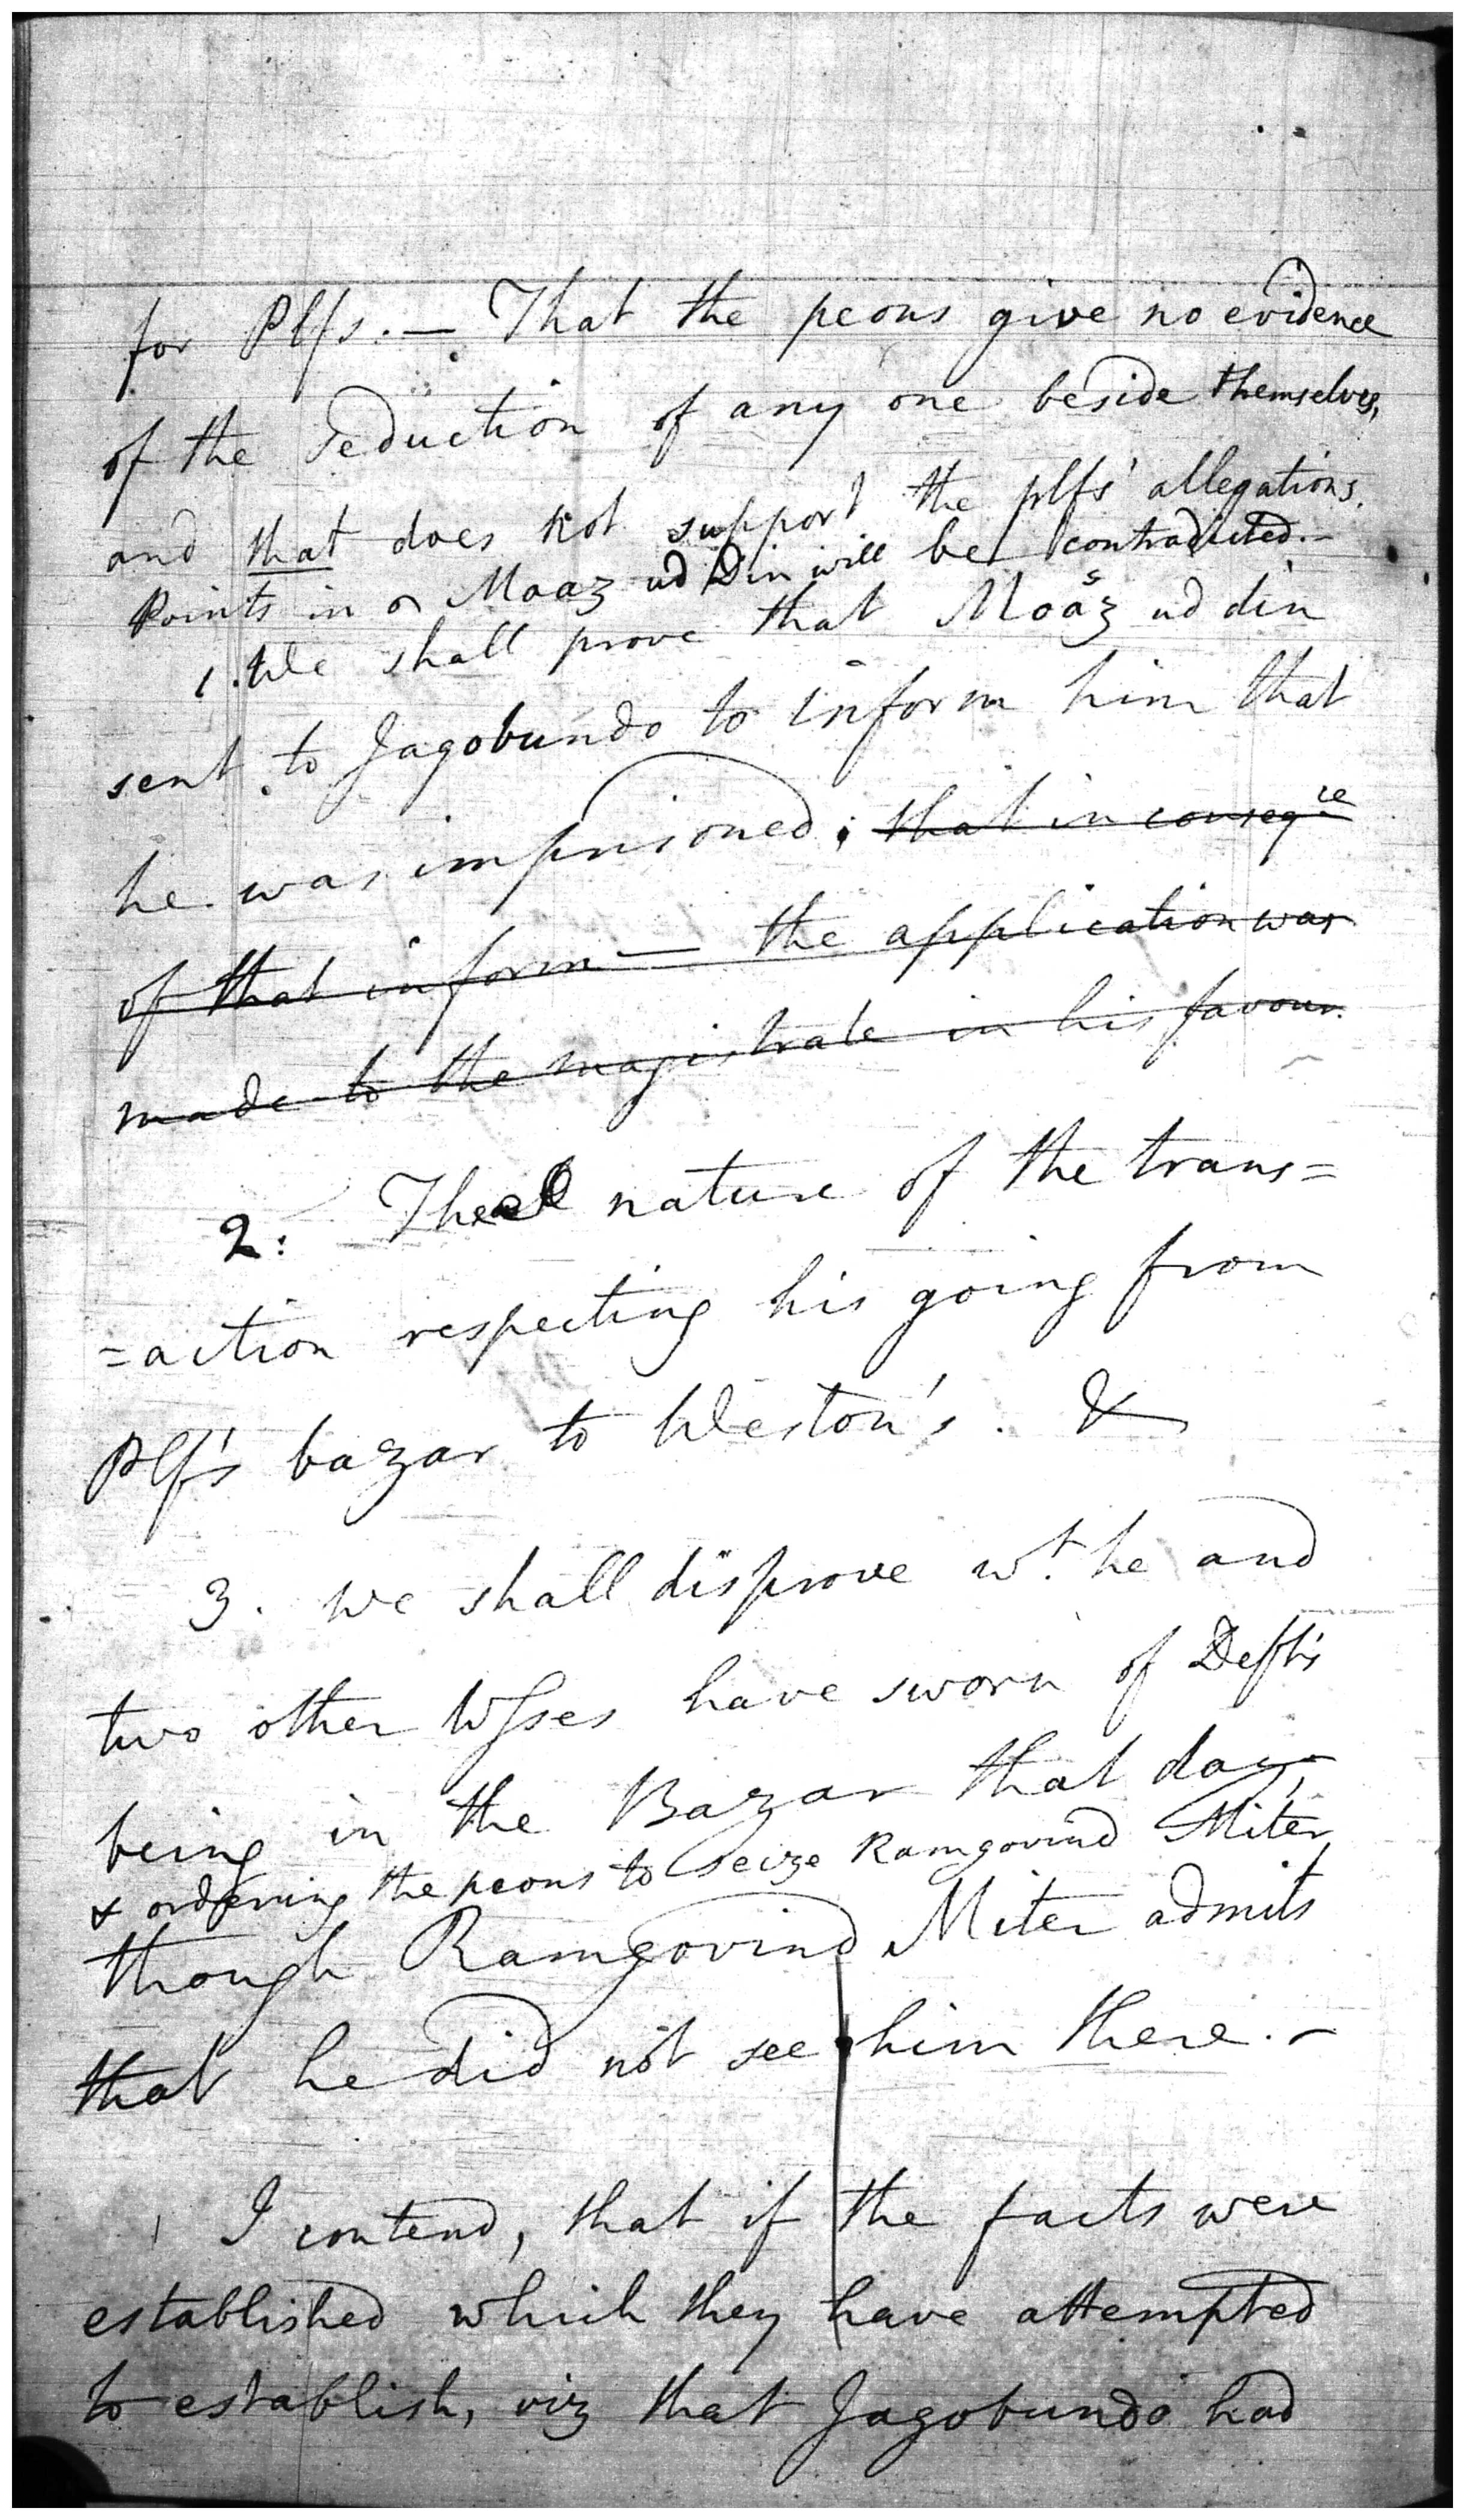 for Plfs. — That the peons give no evidence
of the Seduction of any one beside themselves,
and that does not support the plfs' allegations.
Points in Moaz ud Din will be contradicted. -
1. We shall prove that Moaz ud din
sent to Jagobundo to inform him that
he was imprisoned; that in conseqce
of that inform— the application was
made to the magistrate in his favour.
2: The nature of the trans=
=action respecting his going from
Plf's bazar to Weston's. &
3. We shall disprove wt. he and
two other Wsses have sworn of Deft's
being in the Bazar that day,
& ordering the peons to seize Ramgovind Miter,
though Ramgovind Miter admits
that he did not see him there. -
I contend, that if the facts were
established which they have attempted
to establish, viz that Jagobundo had